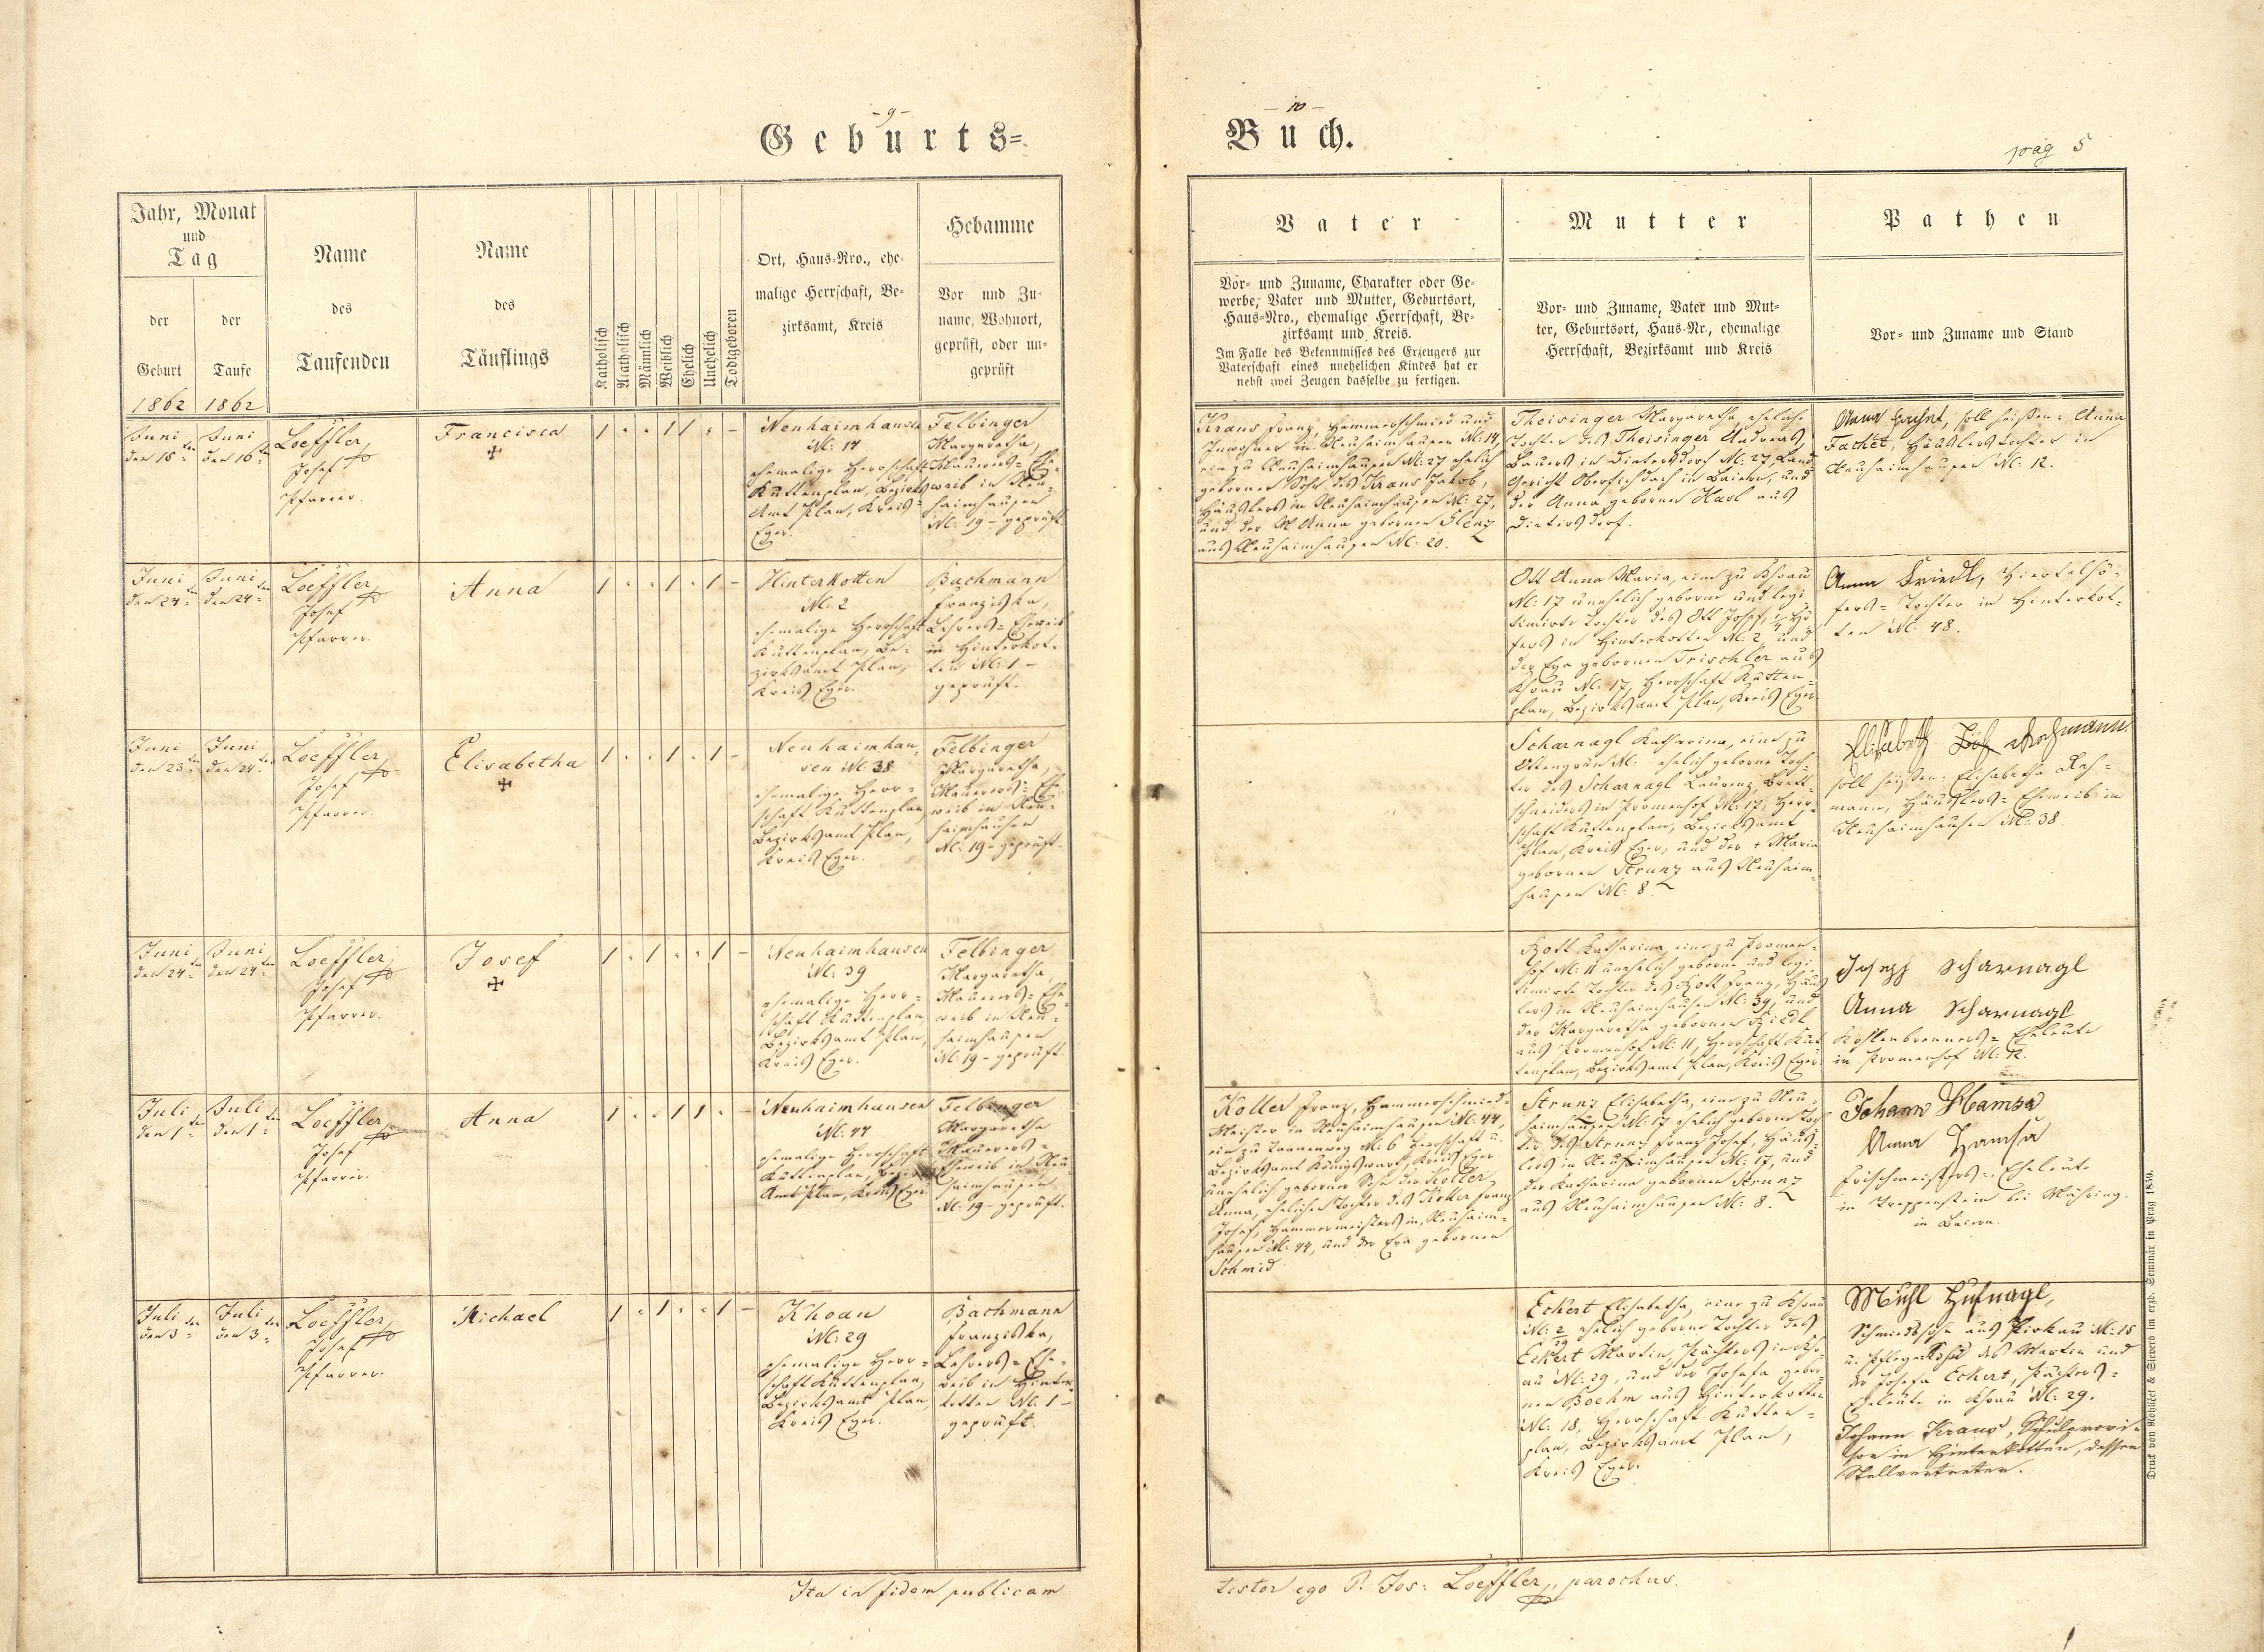 - 9 -
Geburts=
Jahr, Monat
und
Tag
der
Geburt
der
Taufe
1862 1862
Name
des
Taufenden
Name
des
Täuflings
Katholisch
Akatholisch
Männlich
Weiblich
Ehelich
Unehelich
Todtgeboren
Ort, Haus-Nro., ehe-
malige Herrschaft, Be-
zirksamt, Kreis
Hebamme
Vor und Zu-
name, Wohnort,
geprüft, oder un-
geprüft
Juni
den 15ten
Juni
den 16ten
Loeffler,
Josef
Pfarrer.
Francisca
Neuhaimhausen
N: 14
ehemalige Herrschaft
Kuttenplan, Bezirks
Amt Plan, Kreis
Eger.
Felbinger
Margaretha,
Maurers= Ehe=
weib in Neu=
haimhausen
N: 19 - geprüft.
Juni
den 24ten
Juni
den 24ten
Loeffler,
Josef
Pfarrer.
Anna
Hinterkotten
N: 2
ehemalige Herrschaft
Kuttenplan, Be=
zirksamt Plan,
Kreis Eger.
Bachmann
Franziska,
Lehrers= Eheweib
in Hinterkot=
ten N: 1 -
geprüft.
Juni
den 23ten
Juni
den 24ten
Loeffler,
Josef
Pfarrer.
Elisabetha
Neuhaimhau=
sen N: 38
ehemalige Herr=
schaft Kuttenplan,
Bezirksamt Plan,
Kreis Eger.
Felbinger
Margaretha,
Maurers= Ehe=
weib in Neu=
haimhausen
N: 19 - geprüft.
Juni
den 24ten
Juni
den 24ten
Loeffler,
Josef
Pfarrer.
Josef
Neuhaimhausen
N: 39
ehemalige Herr=
schaft Kuttenplan,
Bezirksamt Plan,
Kreis Eger.
Felbinger
Margaretha,
Maurers= Ehe=
weib in Neu=
haimhausen
N: 19 - geprüft.
Juli
den 1ten
Juli
den 1ten
Loeffler,
Josef
Pfarrer.
Anna
Neuhaimhausen
N: 44
ehemalige Herrschaft
Kuttenplan, Bezirks
Amt Plan, Kreis Eger.
Felbinger
Margaretha
Maurers=
Eheweib in Neu=
haimhausen
N: 19 - geprüft.
Juli
den 3ten
Juli
den 3ten
Loeffler,
Josef
Pfarrer.
Michael
Khoau
N: 29
ehemalige Herr=
schaft Kuttenplan,
Bezirksamt Plan,
Kreis Eger.
Bachmann
Franziska,
Lehrers= Ehe=
weib in Hinter=
kotten N: 1 -
geprüft.
Ita in fidem publicam
- 10 -
Buch.
pag 5
Vater
Vor- und Zuname, Charakter oder Ge-
werbe, Vater und Mutter, Geburtsort,
Haus-Nro., ehemalige Herrschaft, Be-
zirksamt und Kreis.
Im Falle des Bekenntnisses des Erzeugers zur
Vaterschaft eines unehelichen Kindes hat er
nebst zwei Zeugen dasselbe zu fertigen.
Mutter
Vor- und Zuname, Vater und Mut-
ter, Geburtsort, Haus-Nr., ehemalige
Herrschaft, Bezirksamt und Kreis
Pathen
Vor- und Zuname und Stand
Kraus Franz, Hammerschmied und
Inwohner in Neuhaimhausen N: 14,
ein zu Neuhaimhausen N: 27 ehelich
geborner Sohn des Kraus Jakob,
Häuslers in Neuhaimhausen N: 27,
und der Anna gebornen Glenz
aus Neuhaimhausen N: 20.
Theisinger Margaretha, eheliche
Tochter des Theisinger Andreas,
Bauers in Dietersdorf N: 27, Land
Gericht Oberviechtach in Baiern, und
der Anna gebornen Hasl aus
Dietersdorf.
Anna soll heißen: Anna
Fachet, Häuslerstochter in
Neuhaimhausen N: 12.
Ott Anna Maria, eine zu Khoau
N: 17 unehelich geborne und legi=
timirte Tochter des Ott Josef, 1/4 Hö=
fers in Hinterkotten N: 2, und
der Eva gebornen Trischler aus
Khoau N: 17, Herrschaft Kutten=
plan, Bezirksamt Plan, Kreis Eger.
Anna Friedl, Viertelhö=
fers= Tochter in Hinterkot=
ten N: 48.
Scharnagl Katharina, eine zu
Ottengrün N: ehelich geborne Toch=
ter des Scharnagl Laurenz, Brett=
schneiders in Promenhof N: 17, Herr=
schaft Kuttenplan, Bezirksamt
Plan, Kreis Eger, und der + Maria
gebornen Strunz aus Neuhaim=
hausen N: 8.
Elisabeth
soll heißen: Elisabetha
mann, Häuslers= Eheweib in
Neuhaimhausen N: 38.
Katharina, eine zu Promen=
hof N: 11 unehelich geborne und legi=
timirte Tochter des Franz, Häus
lers in Neuhaimhausen N: 39, und
der Margaretha gebornen Riedl
aus Promenhof N: 11, Herrschaft Kut
tenplan, Bezirksamt Plan, Kreis Eger.
Joseph Scharnagl
Anna Scharnagl
Kohlenbrenners= Eheleute
in Promenhof N: 12.
Koller Franz, Hammerschmied=
Meister in Neuhaimhausen N: 44,
ein zu Tannenweg N: 6 Herrschaft u.
Bezirksamt Königswart, Kreis Eger
unehelich geborner Sohn der Koller
Anna, ehelicher Tochter des Koller Franz
Josef, Hammermeisters in Neuhaim=
hausen N: 44, und der Eva gebornen
Schmid
Strunz Elisabetha, eine zu Neu=
haimhausen N: 17 ehelich geborne Toch
ter des Strunz Franz Josef, Häus=
lers in Neuhaimhausen N: 17, und
der Katharina gebornen Strunz
aus Neuhaimhausen N: 8.
Johann Hamsa
Anna Hamsa
Frischmeisters= Eheleute
in Treppenstein bei Mähring
in Baiern.
Eckert Elisabetha, eine zu Khoau
N: 2/29 ehelich geborne Tochter des
Eckert Martin, Pächters in Kho=
au N: 29, und der Josefa gebor=
nen Boehm aus Hinterkotten
N: 18, Herrschaft Kutten=
plan, Bezirksamt Plan,
Kreis Eger.
Michl Hufnagl,
Schmiedssohn aus Pirkau N: 15
u. Pflegesohn des Martin und
der Josefa Eckert, Pächters=
Eheleute in Khoau N: 29.
Johann Kraus, Schulprovi=
sor in Hinterkotten, dessen
Stellvertreter.
testor ego P. Jos: Loeffler, parochus.
Druck von Rohliček & Sievers im erzb. Seminär in Prag 1859.